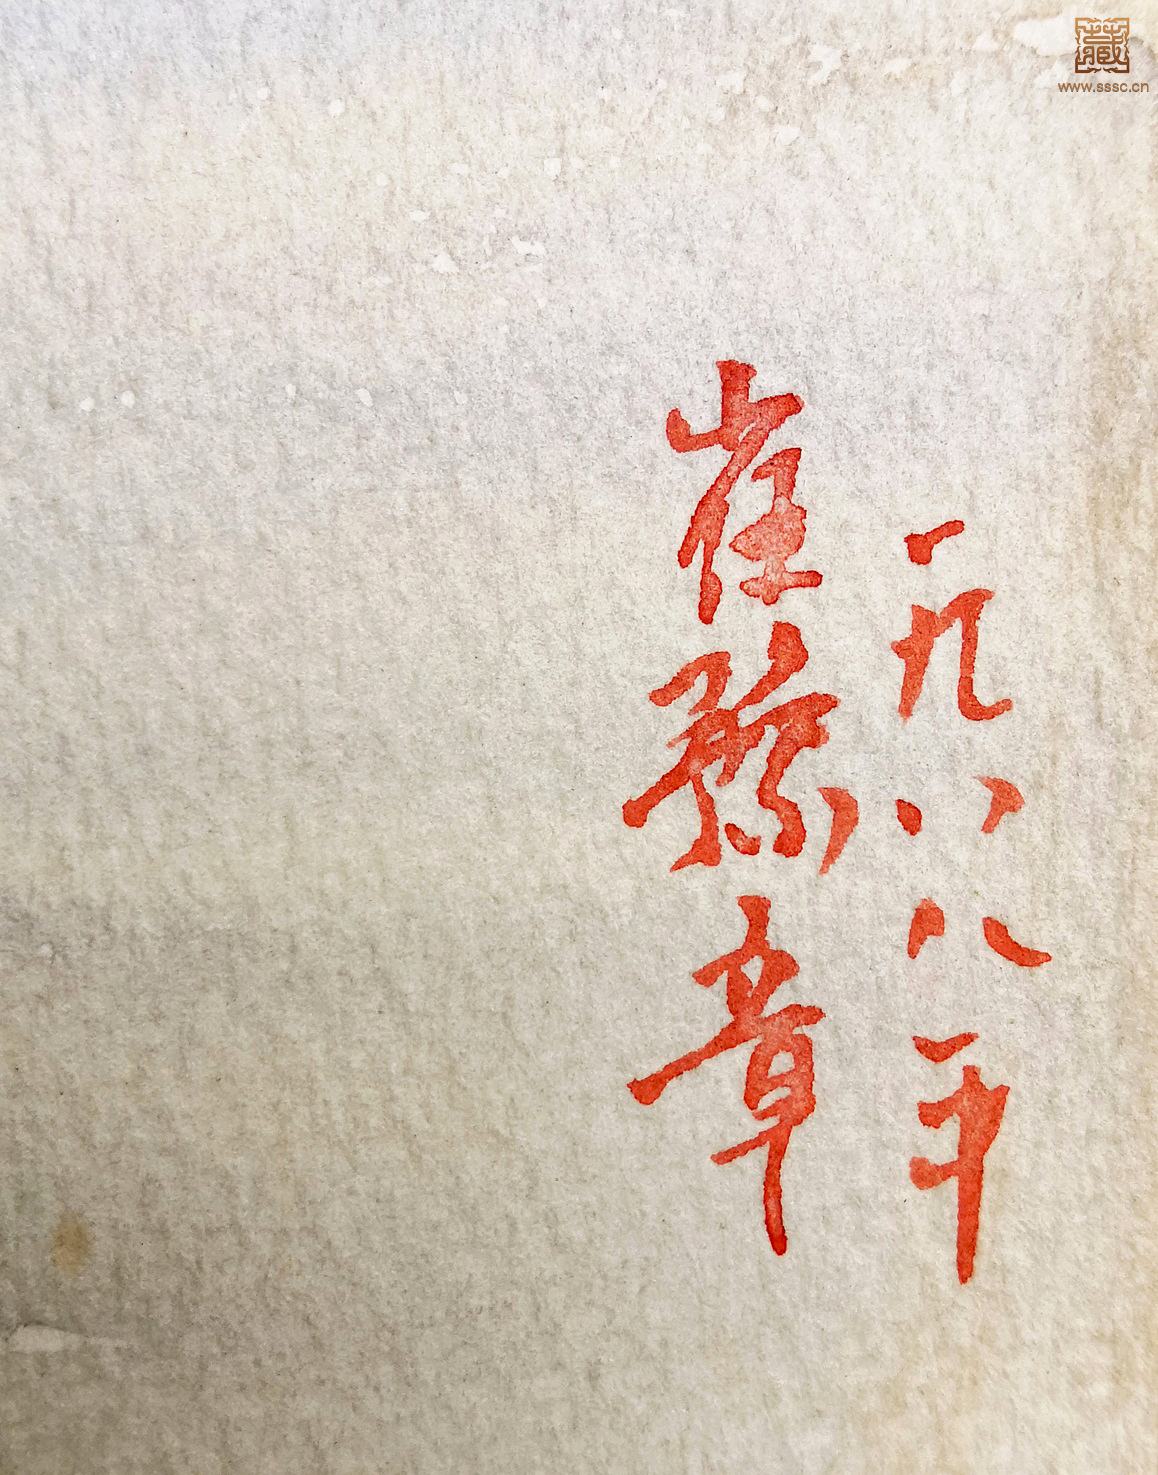 一九八八年
崔豫章
藏
www.sssc.cn